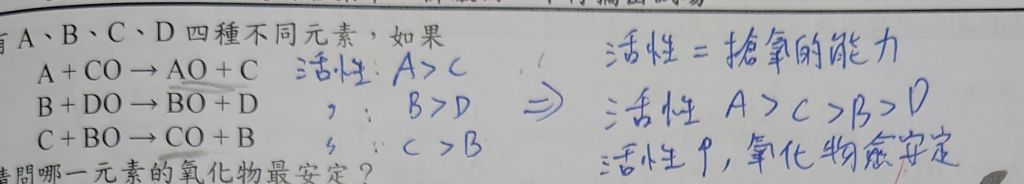 A、B、C、D 四種不同元素，如果
A + CO → AO + C 活性: A > C
B + DO → BO + D 〃 : B > D
C + BO → CO + B 〃 : C > B
問哪一元素的氧化物最安定？
⇒ 活性 = 搶氧的能力
活性 A > C > B > D
活性↑, 氧化物愈安定